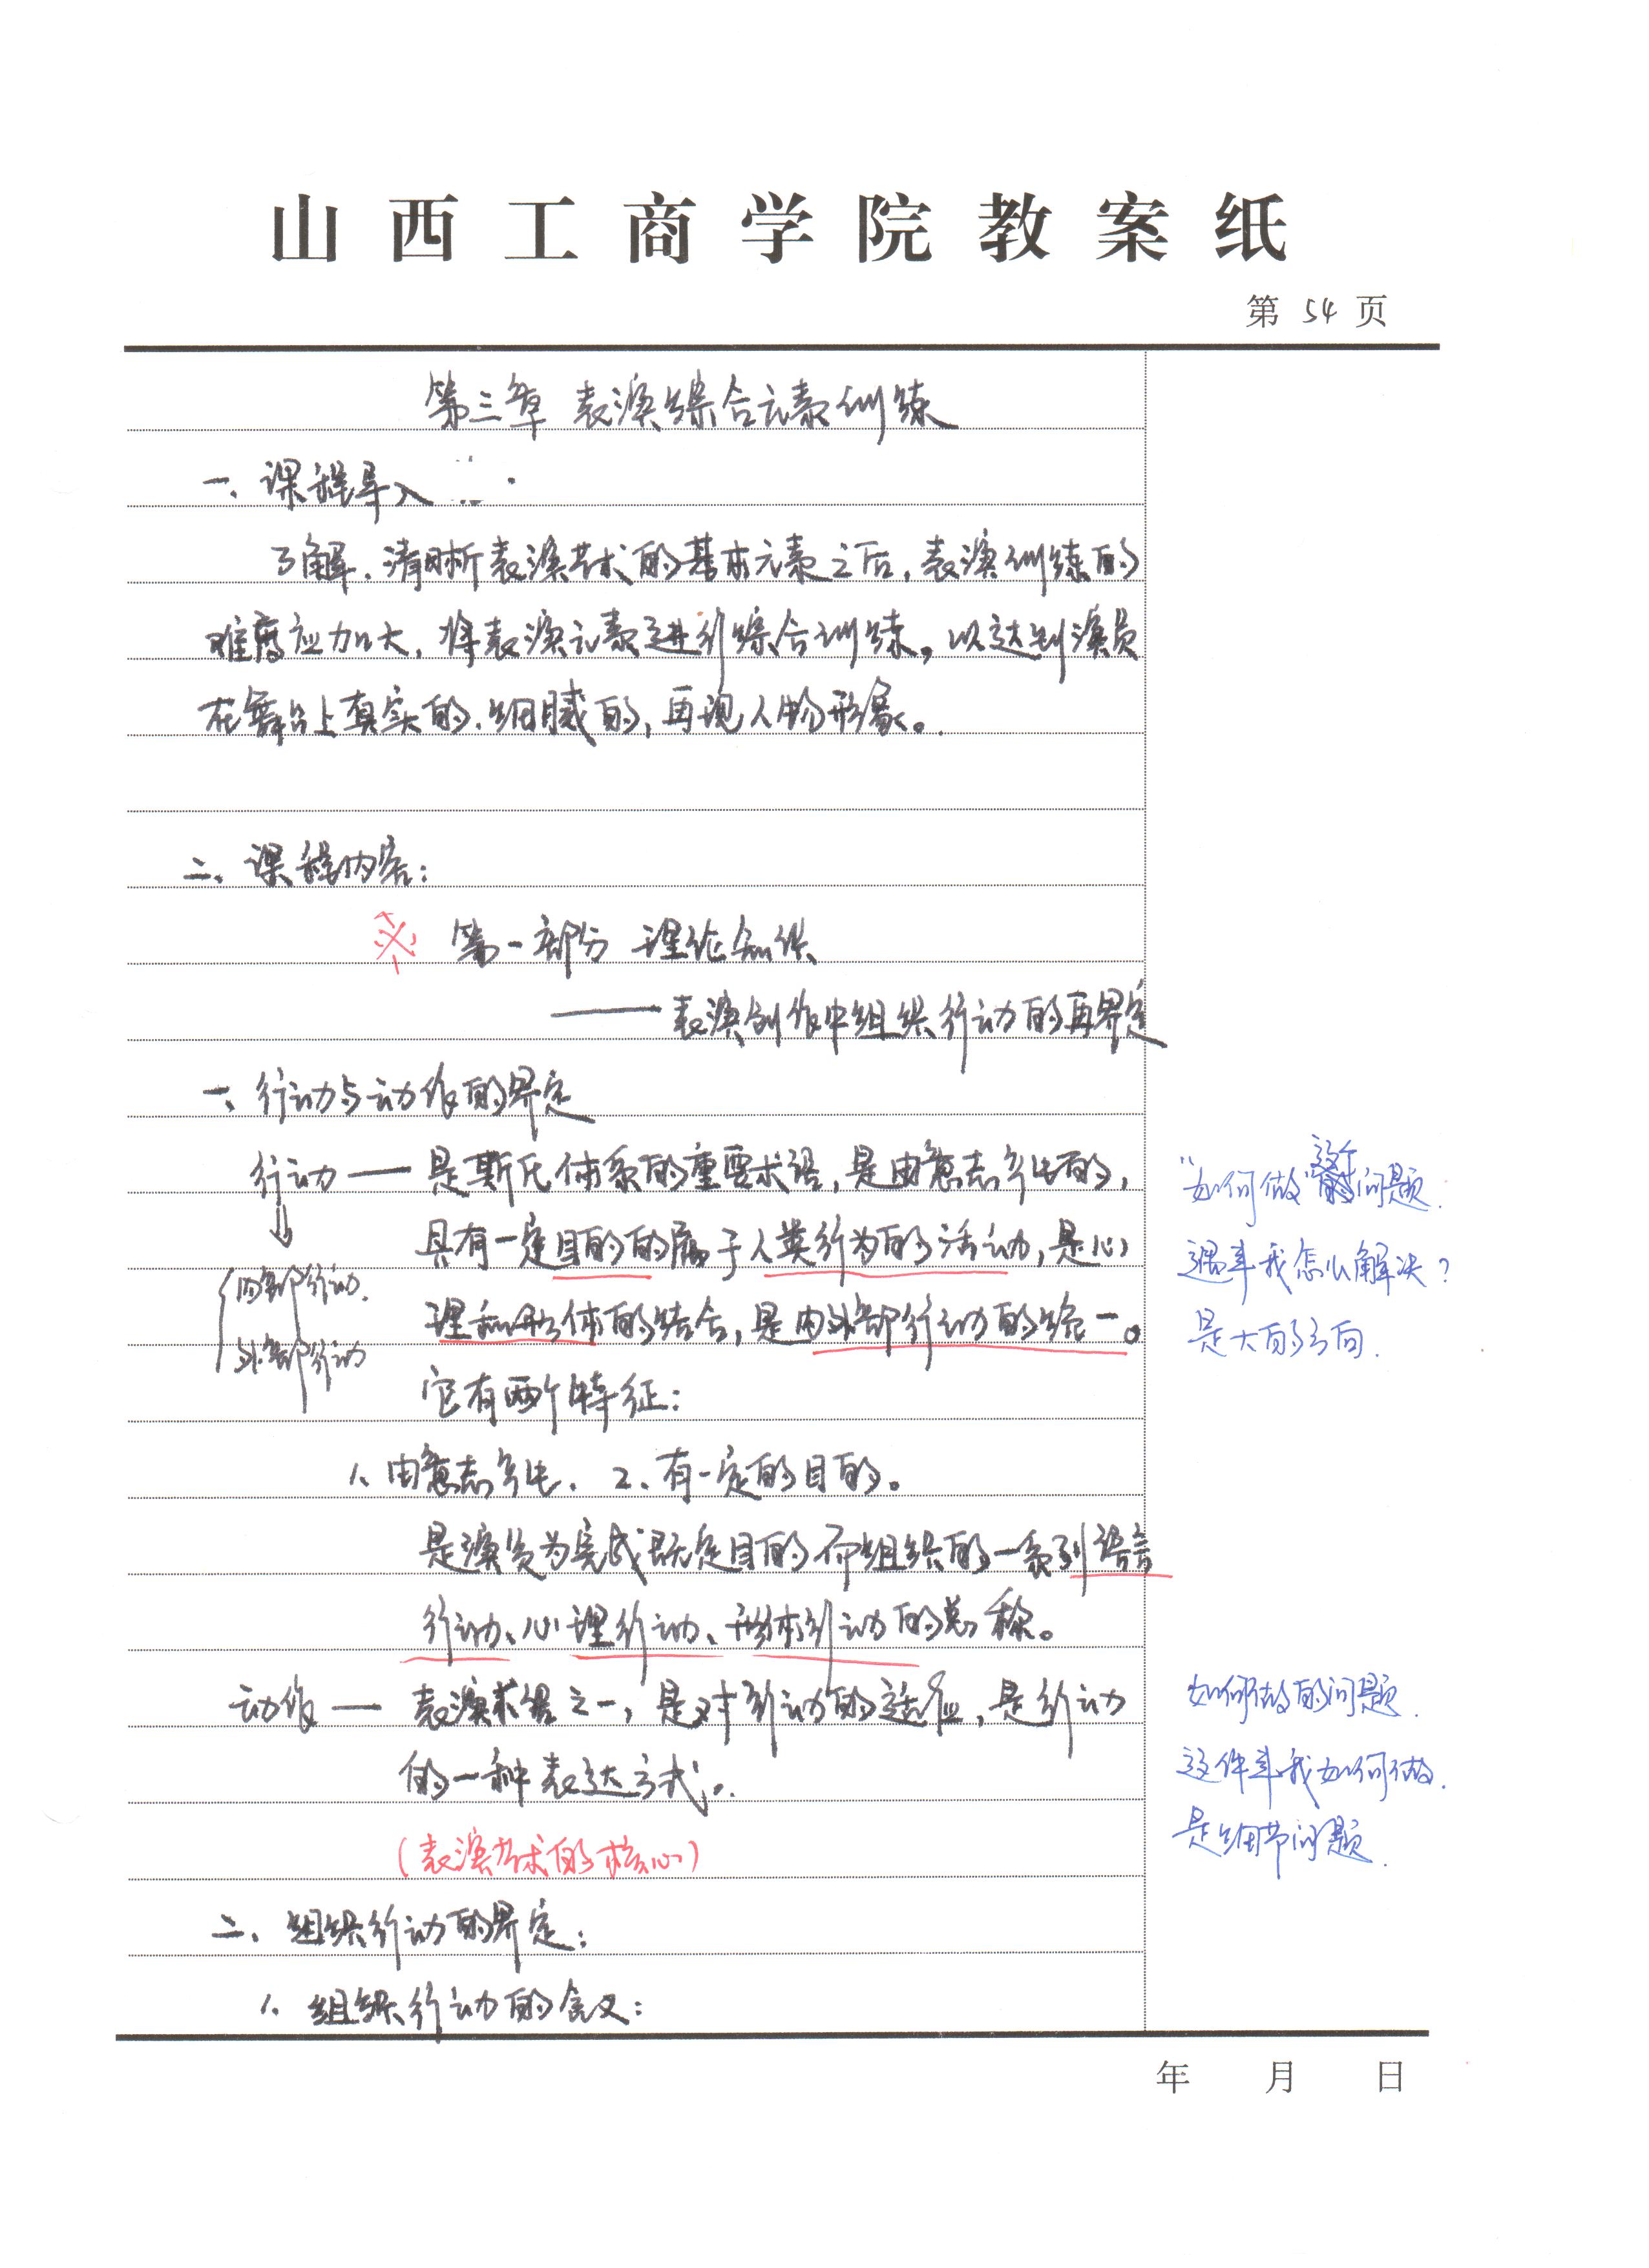 山西工商学院教案纸
第 54 页
第三章 表演综合元素训练
一、课程导入
了解、清晰表演艺术的基本元素之后，表演训练的
难度应加大，将表演元素进行综合训练。以达到演员
在舞台上真实的、细腻的，再现人物形象。
二、课程内容：
※ 第一部分 理论知识
——表演创作中组织行动的再界定
一、行动与动作的界定
行动——是斯氏体系的重要术语，是由意志产生的，
具有一定目的的属于人类行为的活动，是心
理和形体的结合，是内外部行动的统一。
内部行动、
外部行动
它有两个特征：
1、由意志产生、2、有一定的目的。
是演员为完成既定目的而组织的一系列语言
行动、心理行动、形体行动的总称。
动作——表演术语之一，是对行动的适应，是行动
的一种表达方式。
(表演艺术的核心)
二、组织行动的界定：
1、组织行动的含义：
"如何做"这个问题.
遇事我怎么解决？
是大的方向.
如何做的问题.
这件事我如何做.
是细节问题.
年 月 日